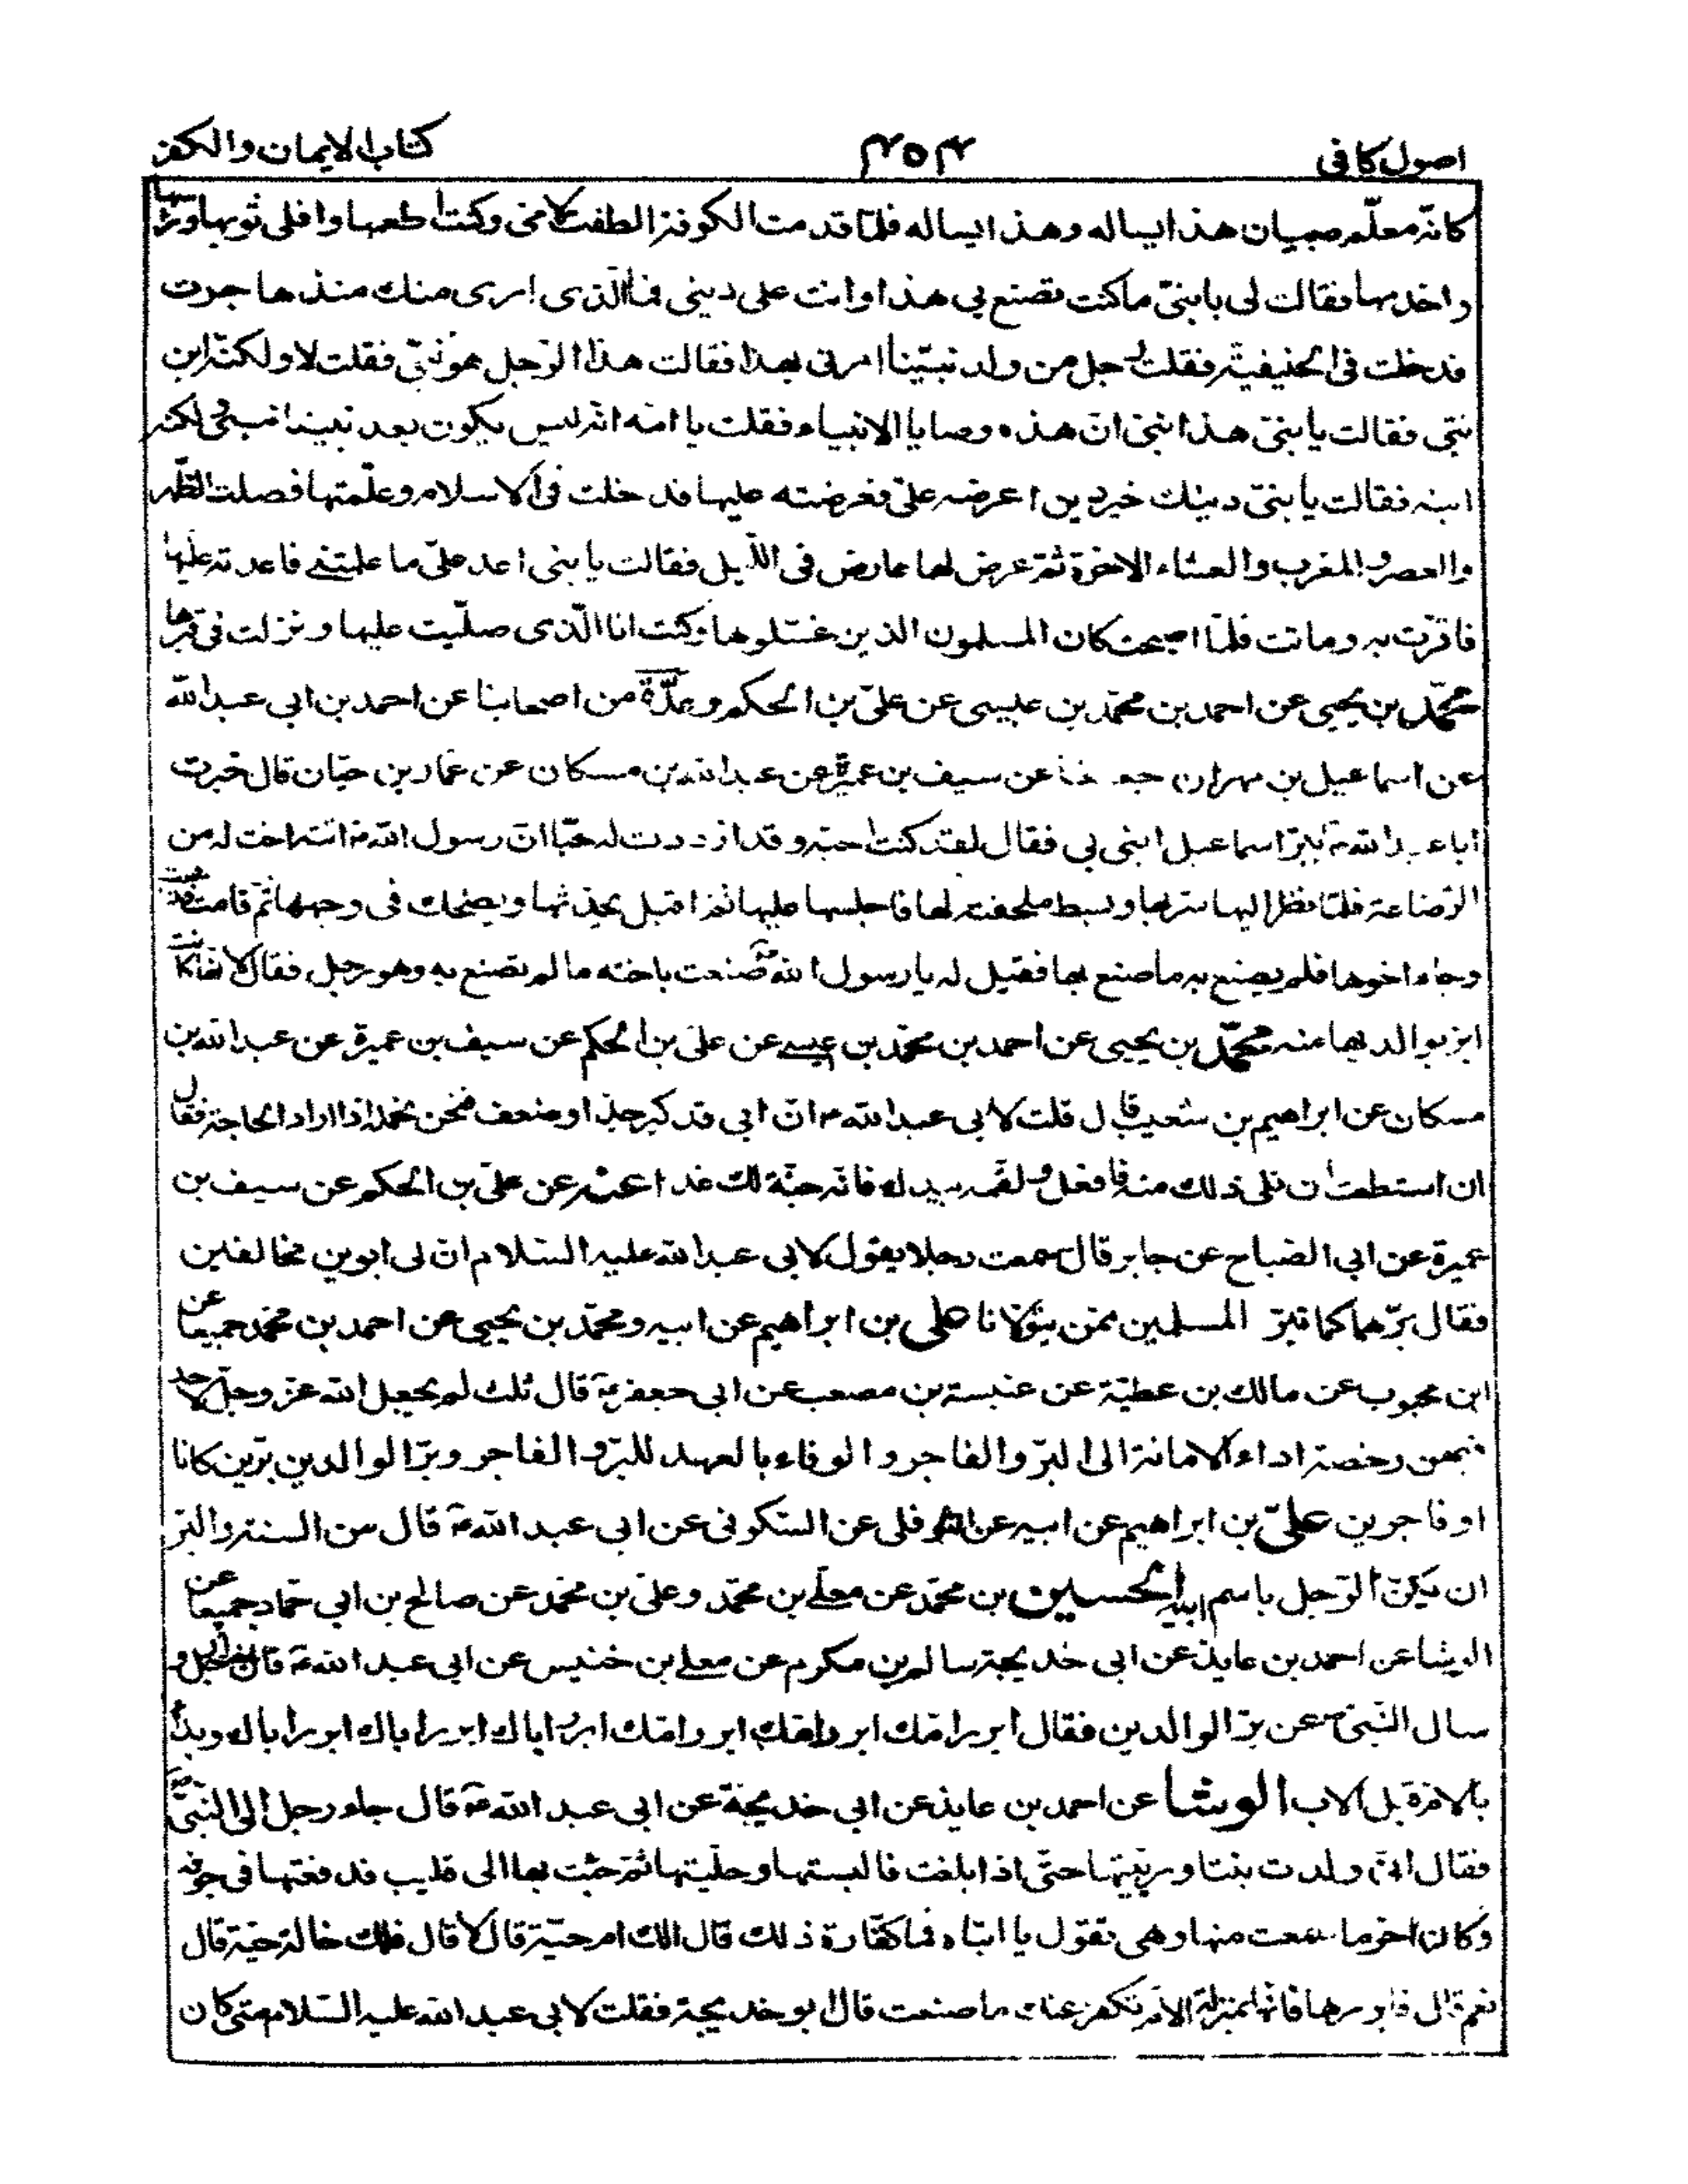 اصول كافى ٤٥٤ كتاب الايمان والكفر
كانّه معلّم صبيان هذا يساله وهذا يساله فلمّا قدمت الكوفة الطفت لامّى وكنت اطعمها وافلى ثوبها وراسها
واخدمها فقالت لى يا بنىّ ما كنت تصنع بى هذا وانت على دينى فما الذى ارى منك منذ هاجرت
فدخلت فى الحنيفيّة فقلت رجل من ولد نبيّنا امرنى بهذا فقالت هذا الرّجل هو نبىّ فقلت لا ولكنّه ابن
نبى فقالت يا بنىّ هذا نبىّ انّ هذه وصايا الانبياء فقلت يا امّه انّه ليس يكون بعد نبينا نبى ولكنّه
ابنه فقالت يا بنىّ دينك خير دين اعرضه علىّ فعرضته عليها فدخلت فى الاسلام وعلّمتها فصلت الظهر
والعصر والمغرب والعشاء الاخرة ثمّ عرض لها عارض فى اللّيل فقالت يا بنى اعد علىّ ما علمتنى فاعدته عليها
فاقرّت به وماتت فلمّا اصبحت كان المسلمون الذين غسّلوها وكنت انا الّذى صلّيت عليها ونزلت فى قبرها
محمّد بن يحيى عن احمد بن محمّد بن عيسى عن علىّ بن الحكم وعدّة من اصحابنا عن احمد بن ابى عبد الله
عن اسماعيل بن مهران جميعا عن سيف بن عميرة عن عبد الله بن مسكان عن عمّار بن حيّان قال خبرت
ابا عبد الله ع ببرّ اسماعيل ابنى بى فقال لقد كنت احبّه وقد ازددت له حبّا انّ رسول الله ص اتته اخت له من
الرّضاعة فلمّا نظر اليها سرّ بها وبسط ملحفته لها فاجلسها عليها ثمّ اقبل يحدّثها ويضحك فى وجهها ثمّ قامت فذهبت
وجاء اخوها فلم يصنع به ما صنع بها فقيل له يا رسول الله ص صنعت باخته ما لم تصنع به وهو رجل فقال لانها كانت
ابرّ بوالديها منه محمّد بن يحيى عن احمد بن محمّد بن عيسى عن علىّ بن الحكم عن سيف بن عميرة عن عبد الله بن
مسكان عن ابراهيم بن شعيب قال قلت لابى عبد الله ع انّ ابى قد كبر جدّا وضعف فنحن نحمله اذا اراد الحاجة فقال
ان استطعت ان تلى ذلك منه فافعل ولقّمه بيدك فانّه جنّة لك غدا عنه عن علىّ بن الحكم عن سيف بن
عميرة عن ابى الصّباح عن جابر قال سمعت رجلا يقول لابى عبد الله عليه السّلام انّ لى ابوين مخالفين
فقال برّهما كما تبرّ المسلمين ممّن يتولّانا على بن ابراهيم عن ابيه ومحمّد بن يحيى عن احمد بن محمّد جميعا عن
ابن محبوب عن مالك بن عطيّة عن عنبسة بن مصعب عن ابى جعفر ع قال ثلث لم يجعل الله عز وجلّ لاحد
فيهن رخصة اداء الامانة الى البرّ والفاجر والوفاء بالعهد للبرّ والفاجر وبرّ الوالدين برّين كانا
او فاجرين علىّ بن ابراهيم عن ابيه عن النوفلى عن السّكونى عن ابى عبد الله ع قال من السنة والبرّ
ان يكنّى الرّجل باسم ابيه الحسين بن محمّد عن معلّى بن محمّد وعلىّ بن محمّد عن صالح بن ابى حمّاد جميعا عن
الوشا عن احمد بن عايذ عن ابى خديجة سالم بن مكرم عن معلى بن خنيس عن ابى عبد الله ع قال جاء رجل و
سال النّبى ص عن برّ الوالدين فقال ابرر امّك ابرر امّك ابرر امّك ابرر اباك ابرر اباك ابرر اباك وبدأ
بالامّ قبل الاب الوشا عن احمد بن عايذ عن ابى خديجة عن ابى عبد الله ع قال جاء رجل الى النبىّ ص
فقال انّى ولدت بنتا وربّيتها حتّى اذا بلغت فالبستها وحلّيتها ثمّ جئت بها الى قليب فدفعتها فى جوفه
وكان اخر ما سمعت منها وهى تقول يا ابتاه فما كفّارة ذلك قال الك ام حيّة قال لا قال فلك خالة حيّة قال
نعم قال فابررها فانّها بمنزلة الامّ تكفر عنك ما صنعت قال ابو خديجة فقلت لابى عبد الله عليه السّلام متى كان